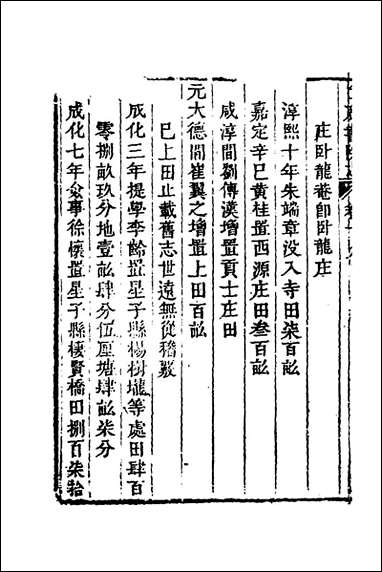 庄卧龍菴卽卧龍庄
淳熙十年朱端章没入寺田柒百畝
嘉定辛巳黄桂置西源庄田叁百畝
咸淳間劉傳漢增置貢士庄田
元大德間崔翼之增置上田百畝
已上田止載舊志世遠無從稽覈
成化三年提學李齡置星子縣楊樹壠等處田肆百
零捌畝玖分地壹畝肆分伍厘塘肆畝柒分
成化七年僉事徐懷置星子縣棲賢橋田捌百柒拾